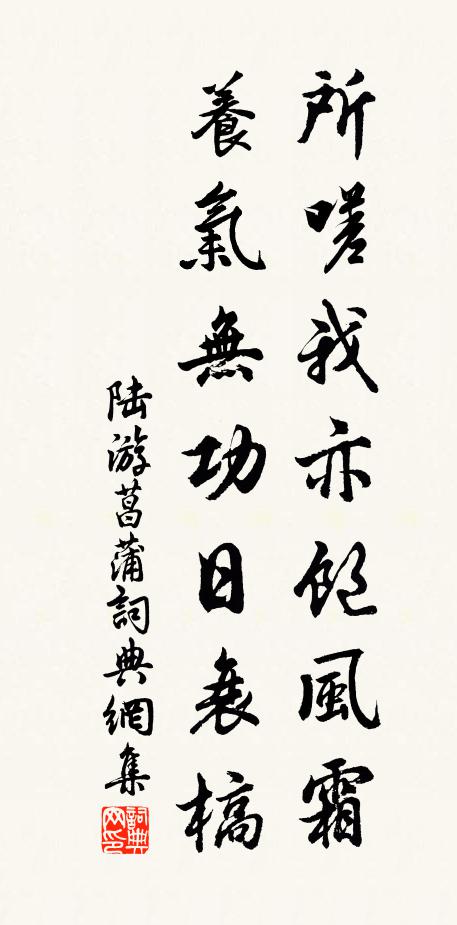 所嗟我亦飽風霜
養氣無功日衰槁
陆游菖蒲詞典網集
詞典网印